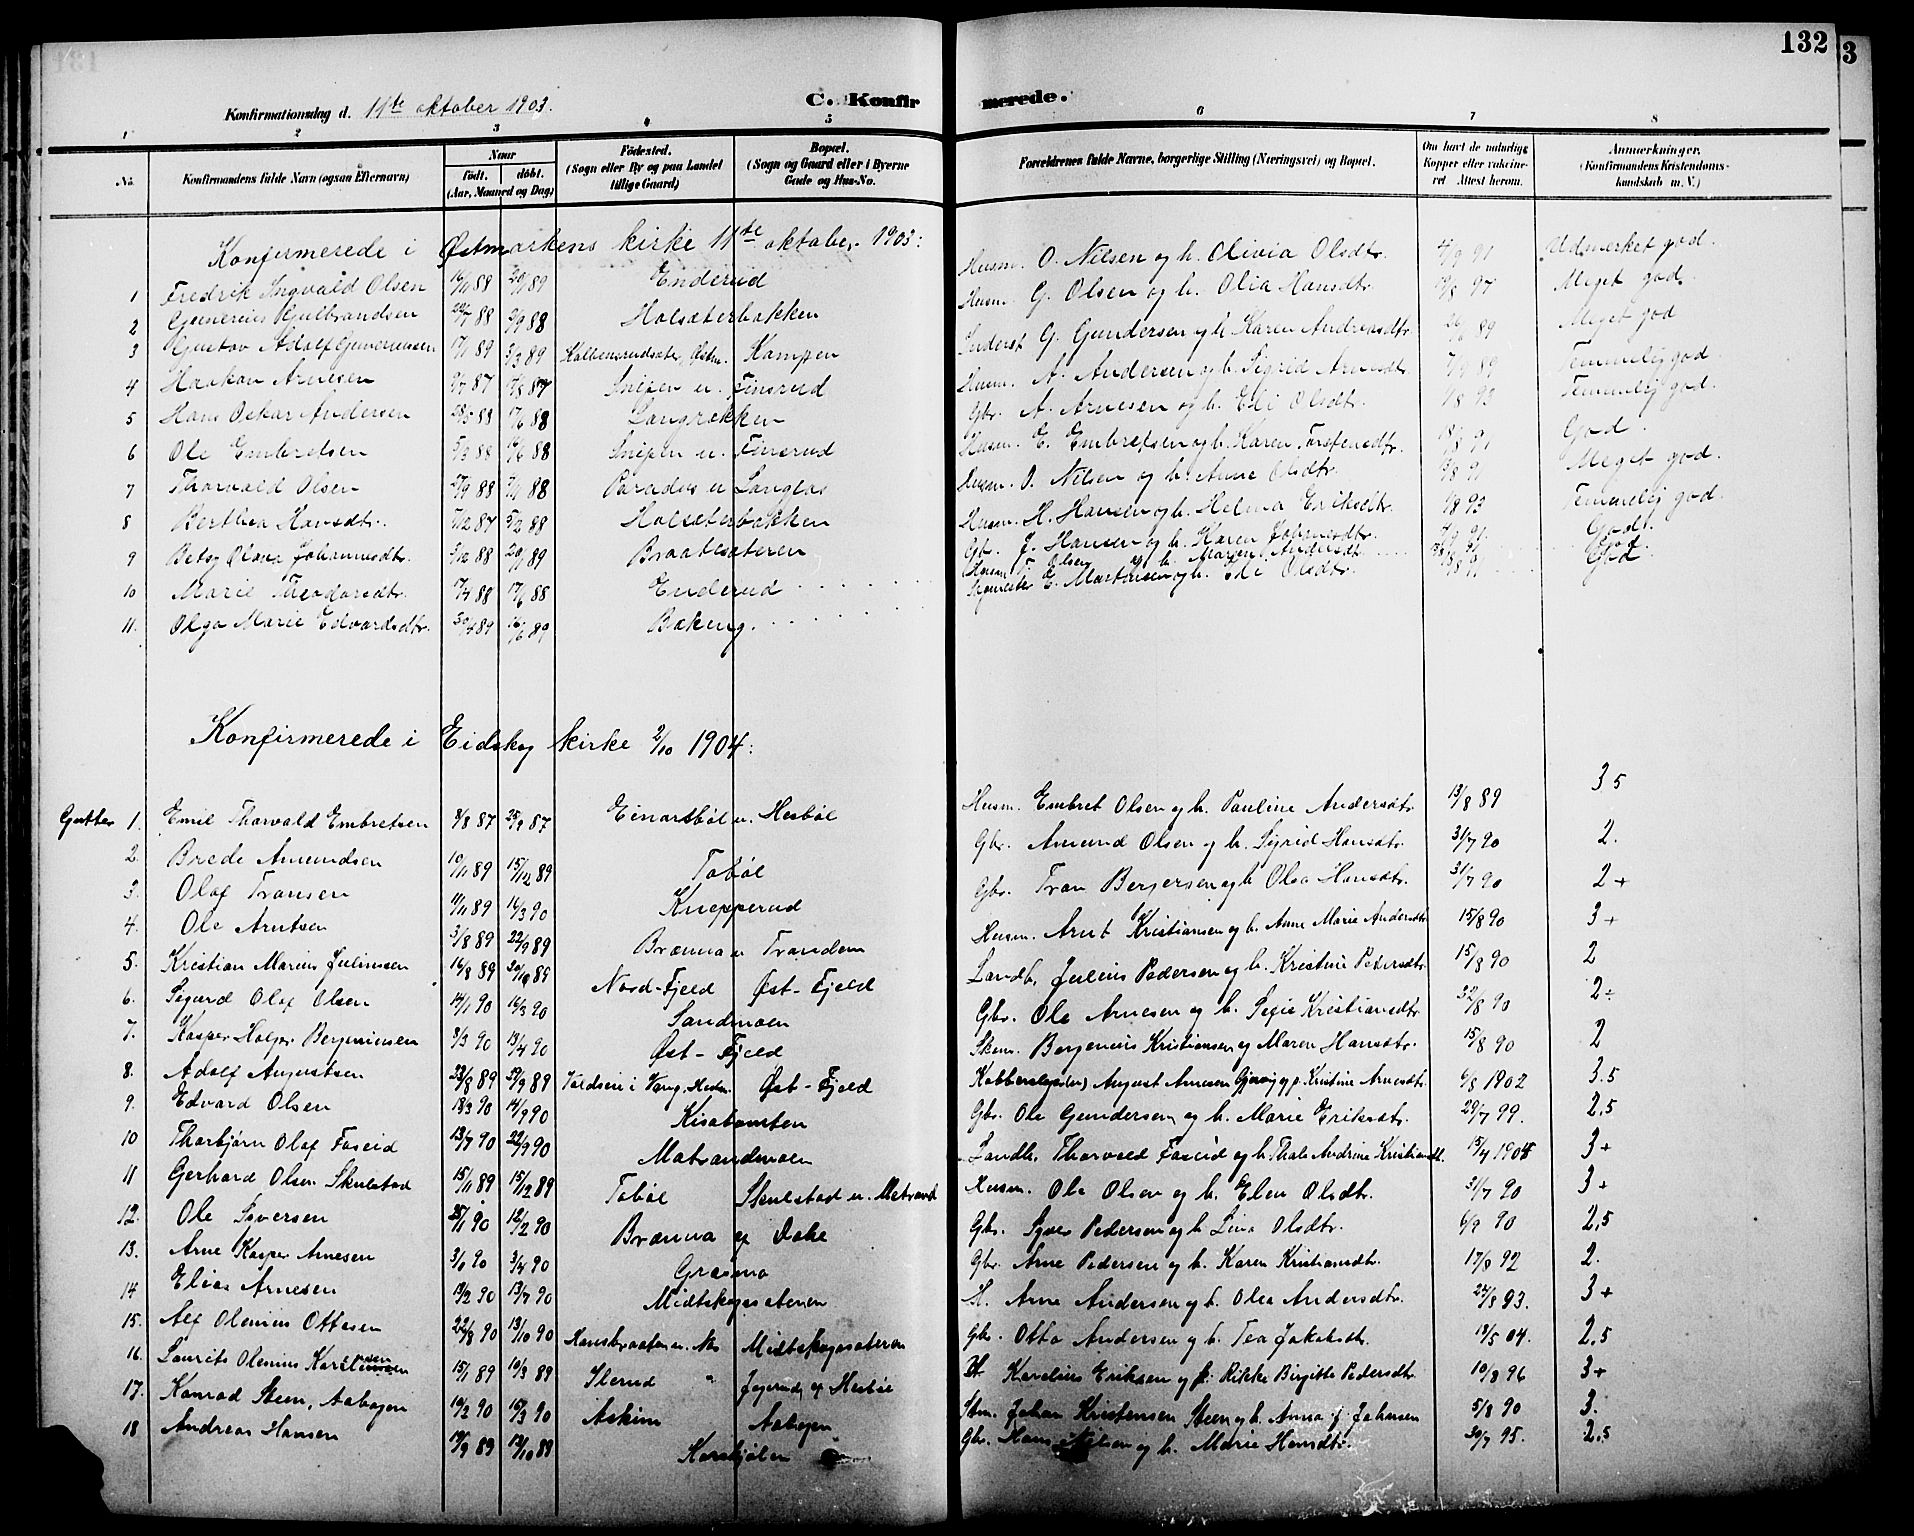 132
3
Konfirmationsdag d. 11te oktober 1903.
C. Konfirmerede.
1 2 3 4 5 6 7 8
No.
Konfirmandens fulde Navn (ogsaa Efternavn)
Naar
født. døbt.
(Aar, Maaned og Dag)
Fødested.
(Sogn eller By og paa Landet tillige Gaard)
Bopæl.
(Sogn og Gaard eller i Byerne Gade og Hus-No.
Forældrenes fulde Navne, borgerlige Stilling (Næringsvei) og Bopæl.
Om havt de naturlige Kopper eller vakcineret Attest herom.
Anmærkninger.
(Konfirmandens Kristendomskundskab m. V.)
Konfirmerede i Østmarkens kirke 11te oktober 1903:
1 Fredrik Ingvald Olsen 16/11 88 20/1 89 Enderud Husm. O. Nilsen og h. Olivia Olsdtr. 4/9 91 Udmerket god.
2 Gulbrandsen 88 2/9 88 Holsæterbakken Husm. G. Olsen og h. Olia Hansdtr. 97 Meget god.
3 Gustav Adolf 17/1 89 5/3 89 Kampen Inderst G. Gundersen og h. Karen Andreasdtr. 89 Meget god
4 Haakon Arnesen 87 87 Snipen u. Finsrud Husm. A. Andersen og h. Sigrid Arnesdtr. 89 Temmelig god.
5 Hans Oskar Andersen 28/5 88 17/6 88 Langrækken Gbr. A. Arnesen og h. Eli Olsdtr. 93 Temmelig god.
6 Ole Embretsen 5/3 88 88 Snipen u. Finsrud Husm. E. Embretsen og h. Karen 91 God.
7 Thorvald Olsen 27/9 88 88 Paradis u. Husm. O. Nilsen og h. Anne Olsdtr. 91 Meget god.
8 Berthea Hansdtr. 87 5/2 88 Holsæterbakken Husm. H. Hansen og h. Helma Eriksdtr. 93 Temmelig god.
9 Betsy Oline Johannesdtr. 5/12 88 20/1 89 Braatesæteren Gbr. J. Hansen og h. Karen 91 God.
10 Marie Theodorsdtr. 88 17/6 88 Enderud Husm. T. Olsen og h. Maren Andersdtr. God.
11. Olga Marie Edvardsdtr. 30/4 89 16/6 89 Bækeng. E. Martinsen og h. Eli Olsdtr. God
Konfirmerede i Eidskog kirke 2/10 1904:
Gutter 1. Emil Thorvald Embretsen 8/8 87 25/9 87 Einarsbøl u. Hesbøl Husm. Embret Olsen og h. Pauline Andersdtr. 13/8 89 3 5
2. Brede Amundsen 10/11 89 15/12 89 Tobøl Gbr. Amund Olsen og h. Sigrid Hansdtr. 31/7 90 2.
3. Olaf Transen 11/11 89 16/3 90 Knepperud Gbr. Tran Bergersen og h Olea Hansdtr. 31/7 90 2+
4. Ole Arntsen 31/8 89 22/9 89 Brænna u Trandem Husm. Arnt Kristiansen og h. Anne Marie Andersdtr 15/8 90 3+
5. Kristian Marius Juliussen 16/8 89 20/10 89 Nord-Fjeld Øst-Fjeld Landh. Julius Pedersen og h. Kristine Pedersdtr. 15/8 90 2
6. Sigurd Olaf Olsen 14/1 90 16/3 90 Sandmoen Gbr. Ole Arnesen og h. Kristiansdtr 22/8 90 2÷
7. Kasper Holger Bergeniusen 8/3 90 13/4 90 Øst-Fjeld Skom. Bergenius Kristiansen og Maren Hansdtr. 15/8 90 2
8. Adolf Augustsen 23/8 89 22/9 89 i Vang, Hedm. Øst-Fjeld August Arnesen og p. Kristine Arnesdtr. 6/8 1902 3.5
9. Edvard Olsen 18/3 90 14/9 90 Kisatomten Gbr. Ole Gundersen og h. Marie Eriksdtr. 29/7 99. 2.5
10 Thorbjørn Olaf Foseid 13/7 90 22/9 90 Matrandmoen Landh. Thorvald Foseid og h. Thale Andrine 15/4 1904 3+
11 Gerhard Olsen Skulstad 15/11 89 15/12 89 Tobøl Skulstad u. Matrand Husm. Ole Olsen og h. Elen Olsdtr. 31/7 90 3+
12. Ole Syversen 25/1 90 12/2 90 Brænna og Dake Gbr. Syver Pedersen og h. Lina Olsdtr. 6/9 90 2,5
13. Arne Kasper Arnesen 3/1 90 3/4 90 Grasmo Gbr. Arne Pedersen og h. Karen Kristiansdtr. 17/8 92 2.
14 Elias Arnesen 13/2 90 13/7 90 Midtskogsæteren H. Arne Andersen og h. Olea Andersdtr. 24/8 93. 3+
15. Alf Olenius Ottesen 22/8 90 13/10 90 Midtskogsæteren Gbr. Otto Andersen og h. Tea Jakobsdtr. 18/5 04. 2,5
16. Laurits Olenius 15/1 89 10/3 89 Sterud Jegerud, og Hesbøl H. Karelius Eriksen og Rikke Birgitte Pedersdtr. 10/8 96 3+
17. Konrad Steen, Aabogen 10/2 90 16/3 90 Askim Aabogen Stm. Johan Kristensen Steen og h. Anna f. Johansen 5/8 90 3.
18 Andreas Hansen 19/9 89 13/10 89 Korsbjølen Gbr. Hans Nilsen og h. Marie Hansdtr. 30/7 95. 2.5